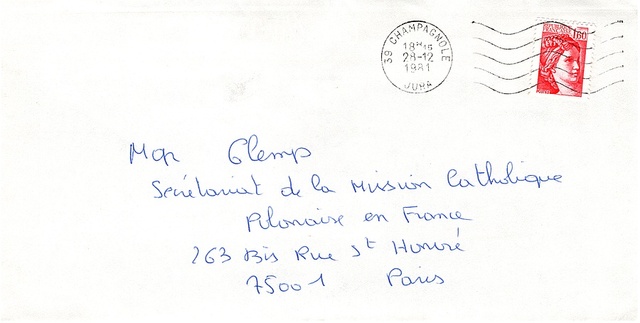 39 CHAMPAGNOLE
18H15
28-12
1981
JURA
1,60
Mgr Glemp
Secrétariat de la Mission Catholique
Polonaise en France
263 Bis Rue St Honoré
75001 Paris